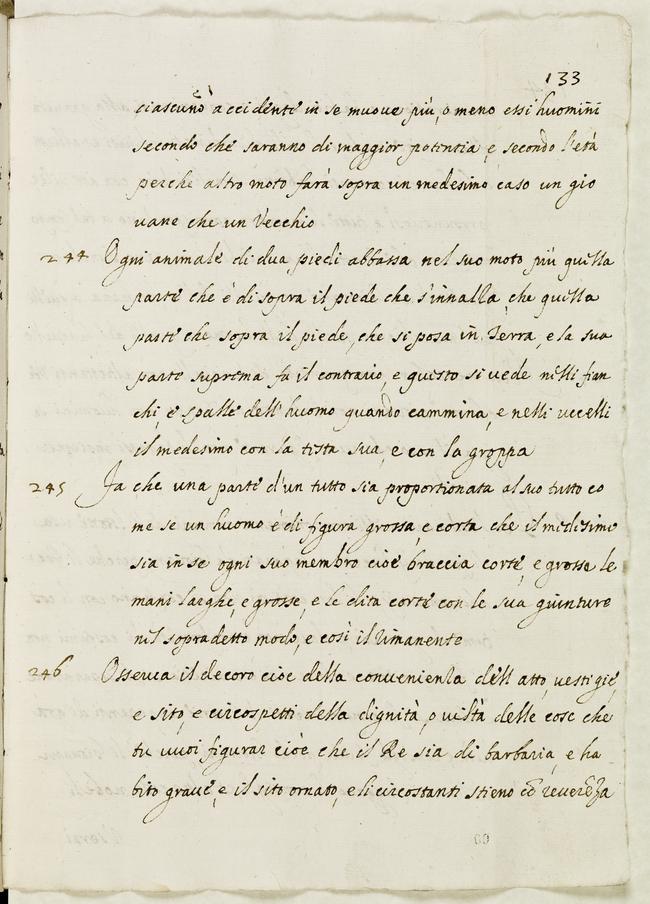 133
ciascuno accidente in se muove più, o meno essi huomini
secondo che saranno di maggior potentia, e secondo l'età
perche altro moto farà sopra un medesimo caso un gio
vane che un Vecchio
244 Ogni animale di dua piedi abbassa nel suo moto più quella
parte che è di sopra il piede che s'innalza, che quella
parte che sopra il piede, che si posa in Terra, e la sua
parte suprema fa il contrario, e questo si vede nelli fian
chi, e spalle dell'huomo quando cammina, e nelli uccelli
il medesimo con la testa sua, e con la groppa
245 Fa che una parte d'un tutto sia proportionata al suo tutto co
me se un huomo è di figura grossa, e corta che il medesimo
sia in se ogni suo membro cioè braccia corte, e grosse le
mani larghe, e grosse, e le dita corte con le sua giunture
nel sopradetto modo, e così il rimanente
246 Osserva il decoro cioè della convenienza dell atto, vestigie,
e sito, e circospetti della dignità, o viltà delle cose che
tu vuoi figurar cioè che il Re sia di barbaria, e ha
bito grave, e il sito ornato, e li circostanti stieno cō reverēza
69